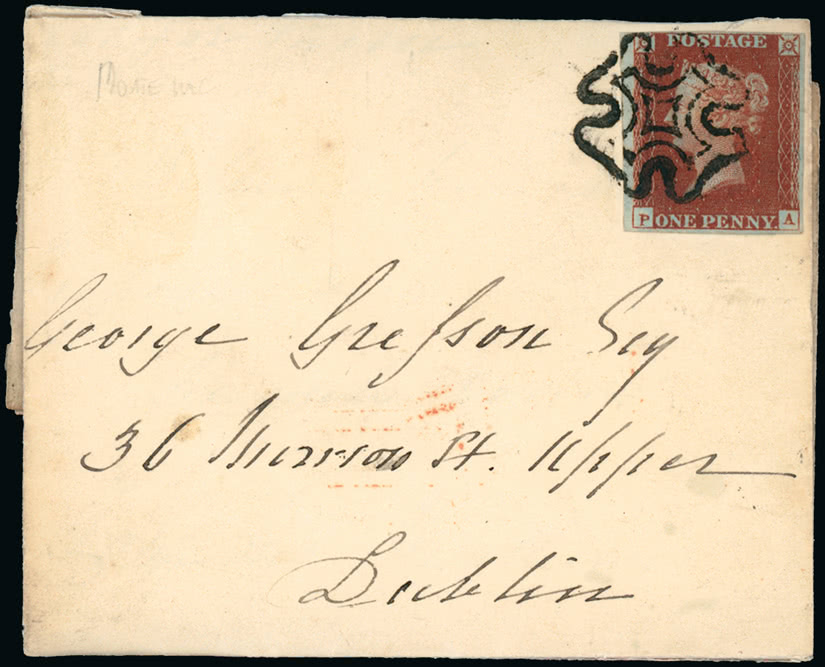 POSTAGE
P ONE PENNY. A
George Greſson Esq
36 St. Upper
Dublin